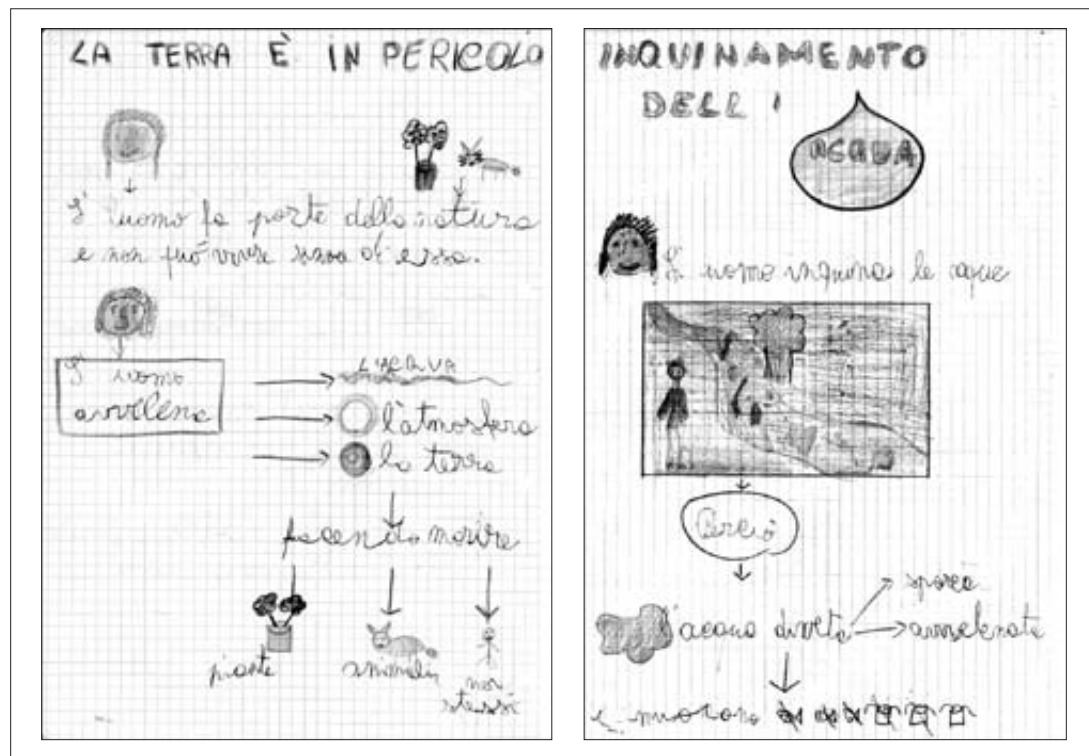 LA TERRA È IN PERICOLO
L' luomo fa parte della natura
e non può vivere senza di essa.
L' uomo
avvelena
L'ACQUA
l'atmosfera
la terra
facendo morire
piante
animali
noi
stessi
INQUINAMENTO
DELL'
ACQUA
L' uomo inquina le aque
Perciò
l'acqua diveta
sporca
avvelenata
e muoiono